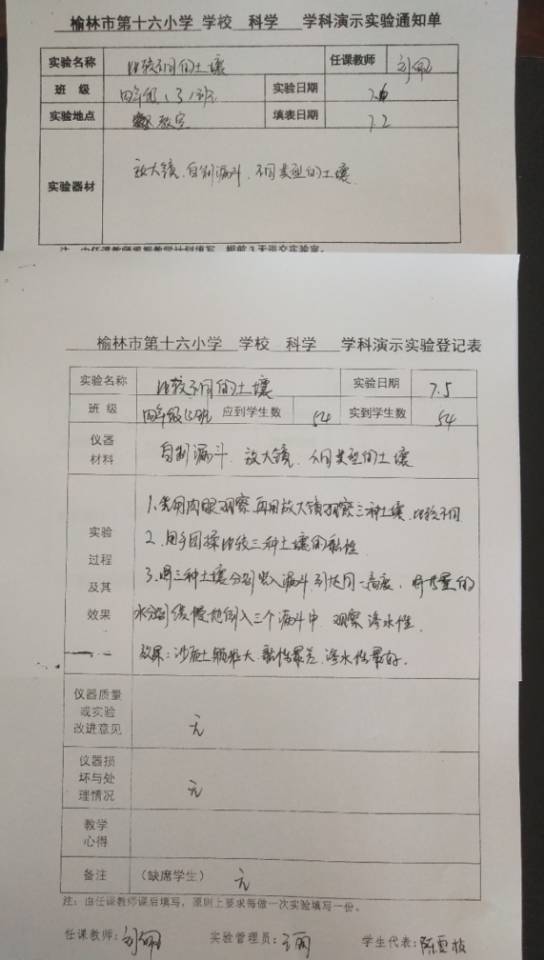 榆林市第十六小学 学校 科学 学科演示实验通知单
实验名称 比较不同的土壤 任课教师
班 级 四年级(3)班 实验日期
实验地点 教室 填表日期 7.2
实验器材 放大镜、自制漏斗、不同类型的土壤
榆林市第十六小学 学校 科学 学科演示实验登记表
实验名称 比较不同的土壤 实验日期 7.5
班 级 四年级 班 应到学生数 54 实到学生数 54
仪器材料 自制漏斗、放大镜、不同类型的土壤
实验过程及其效果
1.先用肉眼观察,再用放大镜观察三种土壤,比较不同
2.用手团揉比较三种土壤的黏性
3.将三种土壤分别装入漏斗,到达同一高度,将等量的
水分别缓慢地倒入三个漏斗中,观察渗水性.
效果:沙质土颗粒大、黏性最差、渗水性最好.
仪器质量或实验改进意见 无
仪器损坏与处理情况 无
教学心得
备注 (缺席学生) 无
注:由任课教师课后填写,原则上要求每做一次实验填写一份。
任课教师: 实验管理员: 学生代表: